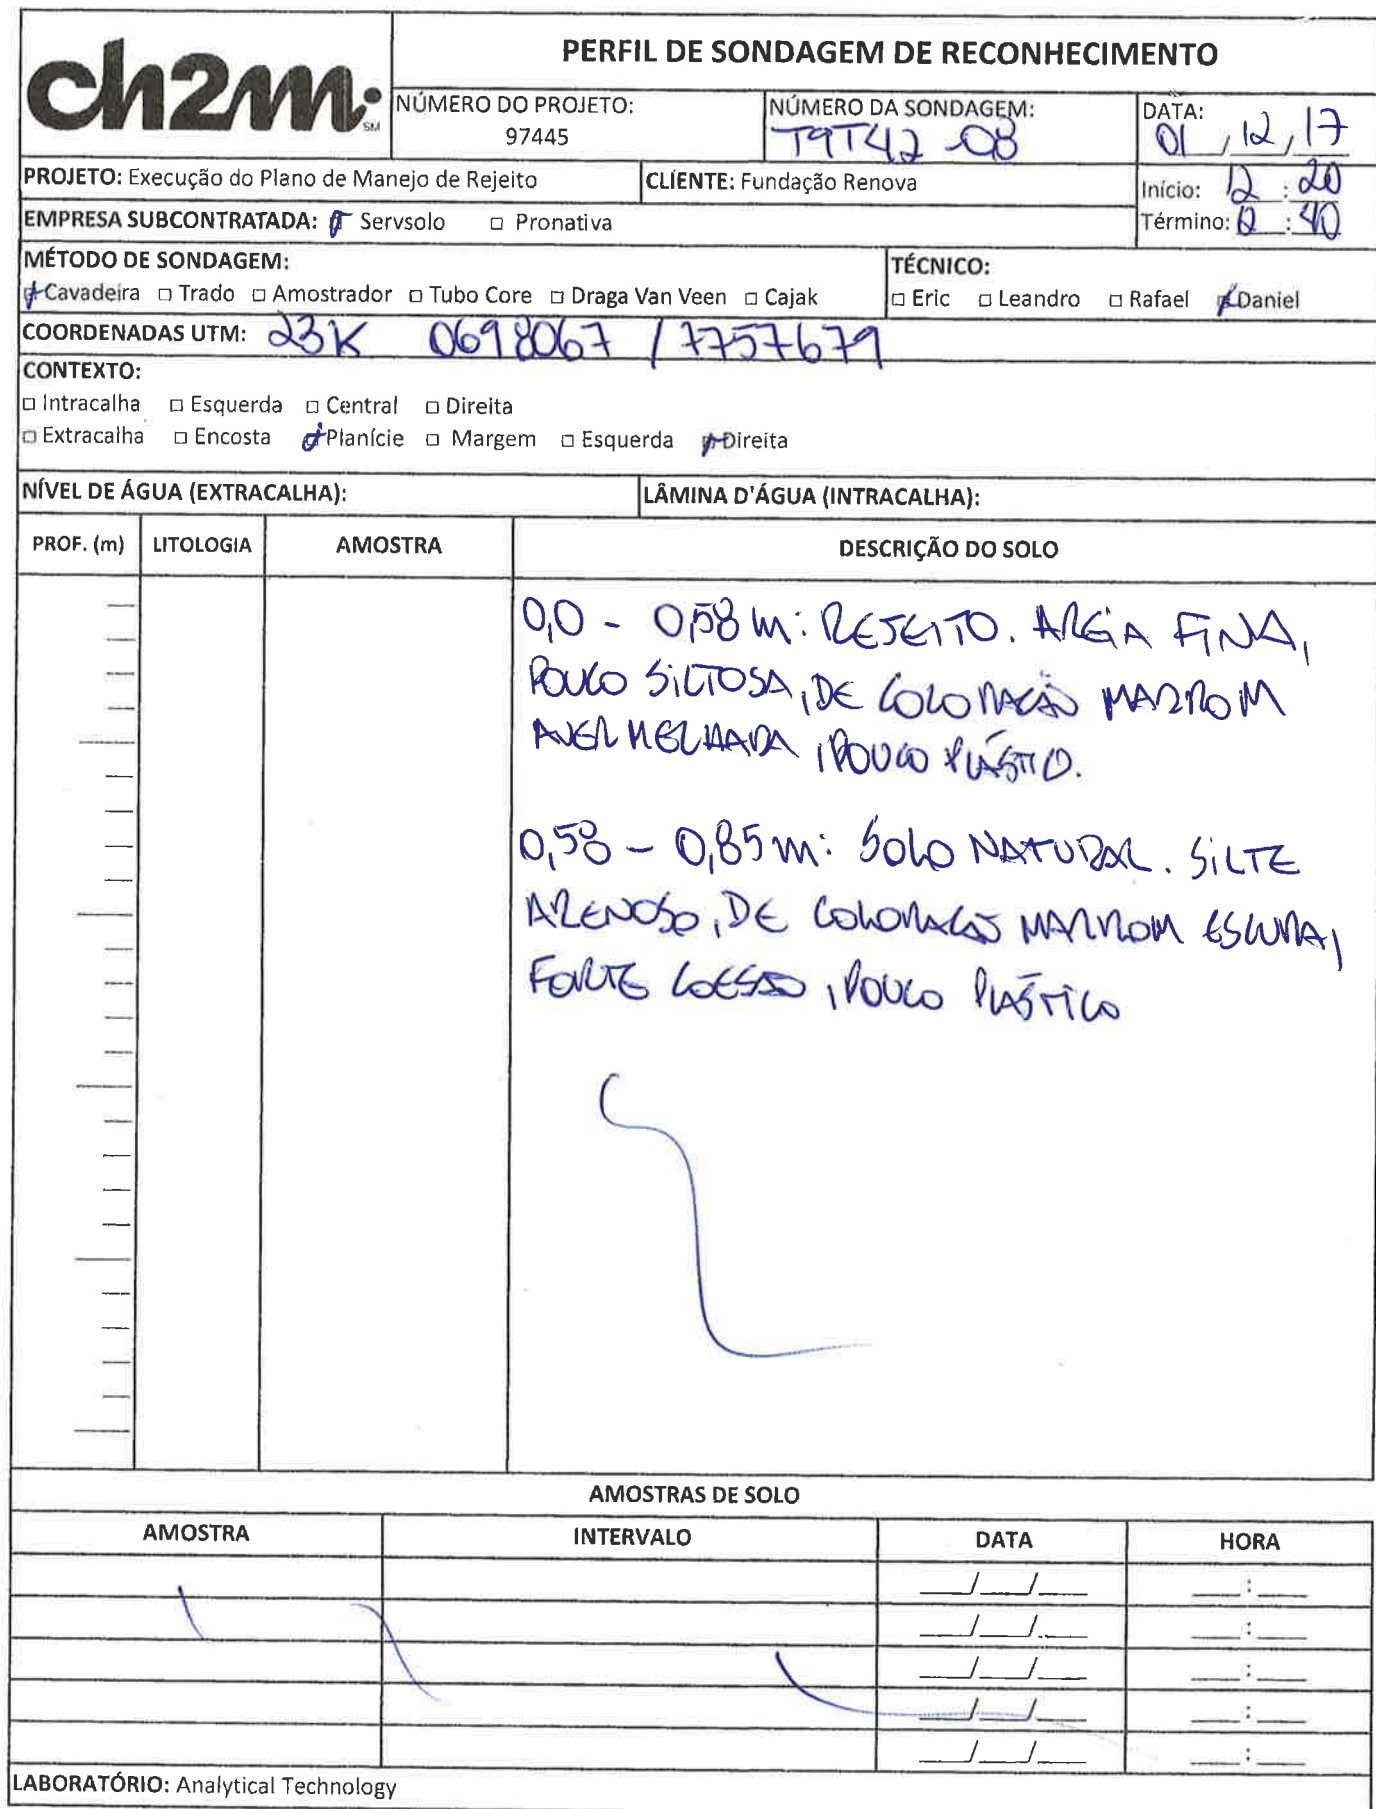 ch2m: SM
PERFIL DE SONDAGEM DE RECONHECIMENTO
NÚMERO DO PROJETO:
97445
NÚMERO DA SONDAGEM:
T9T42-08
DATA:
01/12/17
PROJETO: Execução do Plano de Manejo de Rejeito
CLIENTE: Fundação Renova
Início: 12:20
EMPRESA SUBCONTRATADA: Servsolo □ Pronativa
Término: 12:40
MÉTODO DE SONDAGEM:
Cavadeira □ Trado □ Amostrador □ Tubo Core □ Draga Van Veen □ Cajak
TÉCNICO:
□ Eric □ Leandro □ Rafael Daniel
COORDENADAS UTM: 23K 0698067 / 7757679
CONTEXTO:
□ Intracalha □ Esquerda □ Central □ Direita
□ Extracalha □ Encosta Planície □ Margem □ Esquerda Direita
NÍVEL DE ÁGUA (EXTRACALHA):
LÂMINA D'ÁGUA (INTRACALHA):
PROF. (m) LITOLOGIA AMOSTRA DESCRIÇÃO DO SOLO
0,0 - 0,58 m: REJEITO. AREIA FINA,
POUCO SILTOSA, DE COLORAÇÃO MARROM
AVERMELHADA, POUCO PLÁSTICO.
0,58 - 0,85 m: SOLO NATURAL. SILTE
ARENOSO, DE COLORAÇÃO MARROM ESCURA,
FORTE COESÃO, POUCO PLÁSTICO
AMOSTRAS DE SOLO
AMOSTRA INTERVALO DATA HORA
___/___/___ ___:___
___/___/___ ___:___
___/___/___ ___:___
___/___/___ ___:___
___/___/___ ___:___
LABORATÓRIO: Analytical Technology